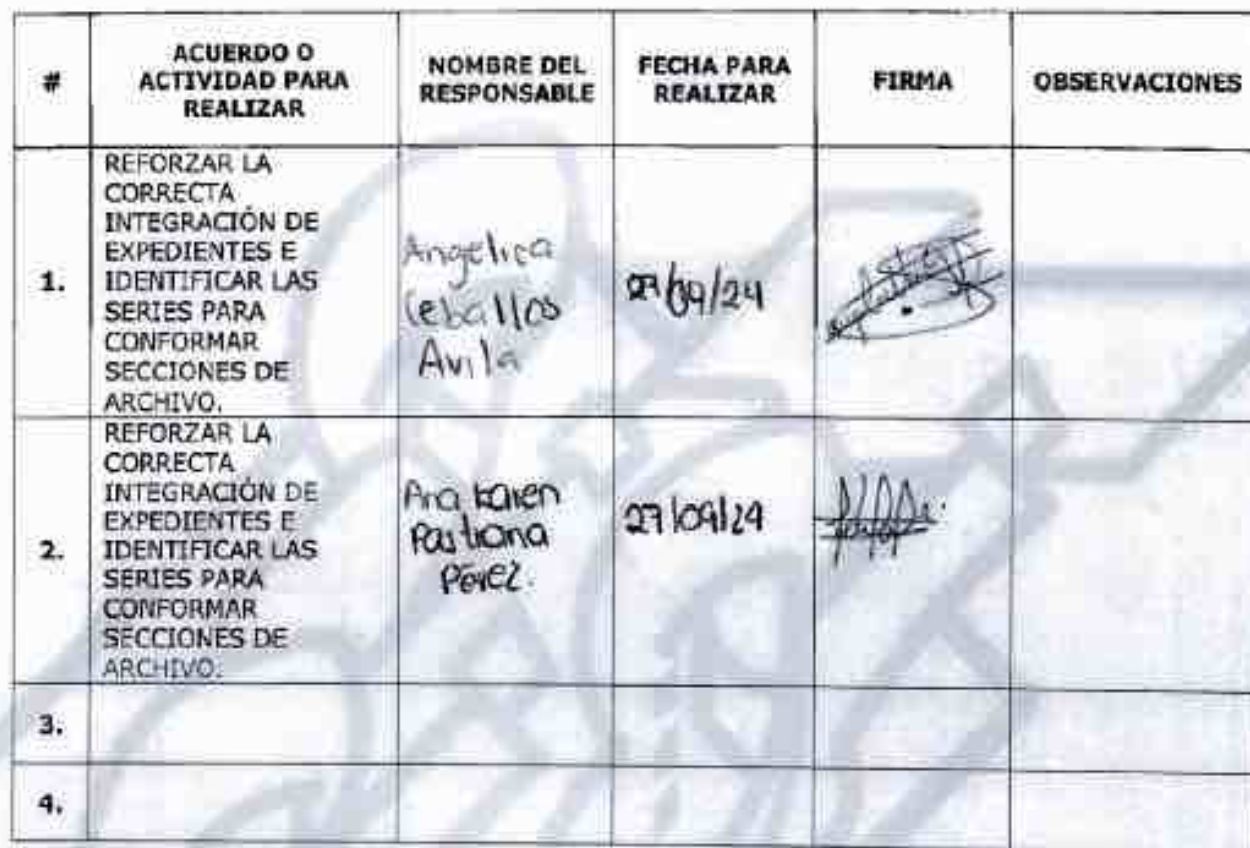 #
ACUERDO O
ACTIVIDAD PARA
REALIZAR
NOMBRE DEL
RESPONSABLE
FECHA PARA
REALIZAR
FIRMA
OBSERVACIONES
1.
REFORZAR LA
CORRECTA
INTEGRACIÓN DE
EXPEDIENTES E
IDENTIFICAR LAS
SERIES PARA
CONFORMAR
SECCIONES DE
ARCHIVO.
Angelica
Ceballos
Avila
27/09/24
2.
REFORZAR LA
CORRECTA
INTEGRACIÓN DE
EXPEDIENTES E
IDENTIFICAR LAS
SERIES PARA
CONFORMAR
SECCIONES DE
ARCHIVO.
Ana Karen
Pastrana
Pérez.
27/09/24
3.
4.